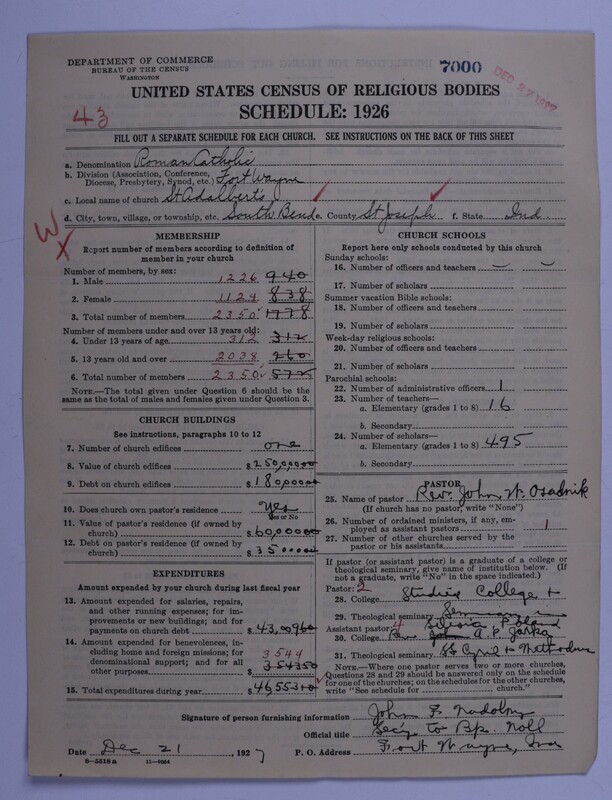 DEPARTMENT OF COMMERCE
BUREAU OF THE CENSUS
WASHINGTON
7000
DEC 27 1927
UNITED STATES CENSUS OF RELIGIOUS BODIES
43
SCHEDULE: 1926
FILL OUT A SEPARATE SCHEDULE FOR EACH CHURCH. SEE INSTRUCTIONS ON THE BACK OF THIS SHEET
a. Denomination Roman Catholic
b. Division (Association, Conference, Diocese, Presbytery, Synod, etc.) Fort Wayne
c. Local name of church St Adalbert's
d. City, town, village, or township, etc. South Bend e. County St Joseph f. State Ind.
MEMBERSHIP
Report number of members according to definition of
member in your church
Number of members, by sex:
1. Male 1226 940
2. Female 1124 838
3. Total number of members 2350 1778
Number of members under and over 13 years old:
4. Under 13 years of age 312 312
5. 13 years old and over 2038 260
6. Total number of members 2350 572
NOTE.—The total given under Question 6 should be the
same as the total of males and females given under Question 3.
CHURCH BUILDINGS
See instructions, paragraphs 10 to 12
7. Number of church edifices one
8. Value of church edifices $250,000 00
9. Debt on church edifices $180,000 00
10. Does church own pastor's residence? Yes
Yes or No
11. Value of pastor's residence (if owned by
church) $60000 00
12. Debt on pastor's residence (if owned by
church) $35000 00
EXPENDITURES
Amount expended by your church during last fiscal year
13. Amount expended for salaries, repairs,
and other running expenses; for im-
provements or new buildings; and for
payments on church debt $43,009 60
14. Amount expended for benevolences, in-
cluding home and foreign missions; for
denominational support; and for all
other purposes $ 3544 3543 50
15. Total expenditures during year $46,553 10
CHURCH SCHOOLS
Report here only schools conducted by this church
Sunday schools:
16. Number of officers and teachers
17. Number of scholars
Summer vacation Bible schools:
18. Number of officers and teachers
19. Number of scholars
Week-day religious schools:
20. Number of officers and teachers
21. Number of scholars
Parochial schools:
22. Number of administrative officers 1
23. Number of teachers—
a. Elementary (grades 1 to 8) 16
b. Secondary
24. Number of scholars—
a. Elementary (grades 1 to 8) 495
b. Secondary
PASTOR
25. Name of pastor Rev. John W. Osadnik
(If church has no pastor, write "None")
26. Number of ordained ministers, if any, em-
ployed as assistant pastors 1
27. Number of other churches served by the
pastor or his assistants
If pastor (or assistant pastor) is a graduate of a college or
theological seminary, give name of institution below. (If
not a graduate, write "No" in the space indicated.)
Pastor: 2
28. College Studied College +
29. Theological seminary Seminary in
Assistant pastor: 4 Silesia Poland
30. College Rev. John A. P. Jarka
31. Theological seminary SS Cyril + Methodius
NOTE.—Where one pastor serves two or more churches,
Questions 28 and 29 should be answered only on the schedule
for one of the churches; on the schedules for the other churches,
write "See schedule for church."
Signature of person furnishing information John F Nadolny
Official title Sec'y to Bp. Noll
Date Dec 21, 1927 P. O. Address Fort Wayne, Ind
8—5518 a 11—9264